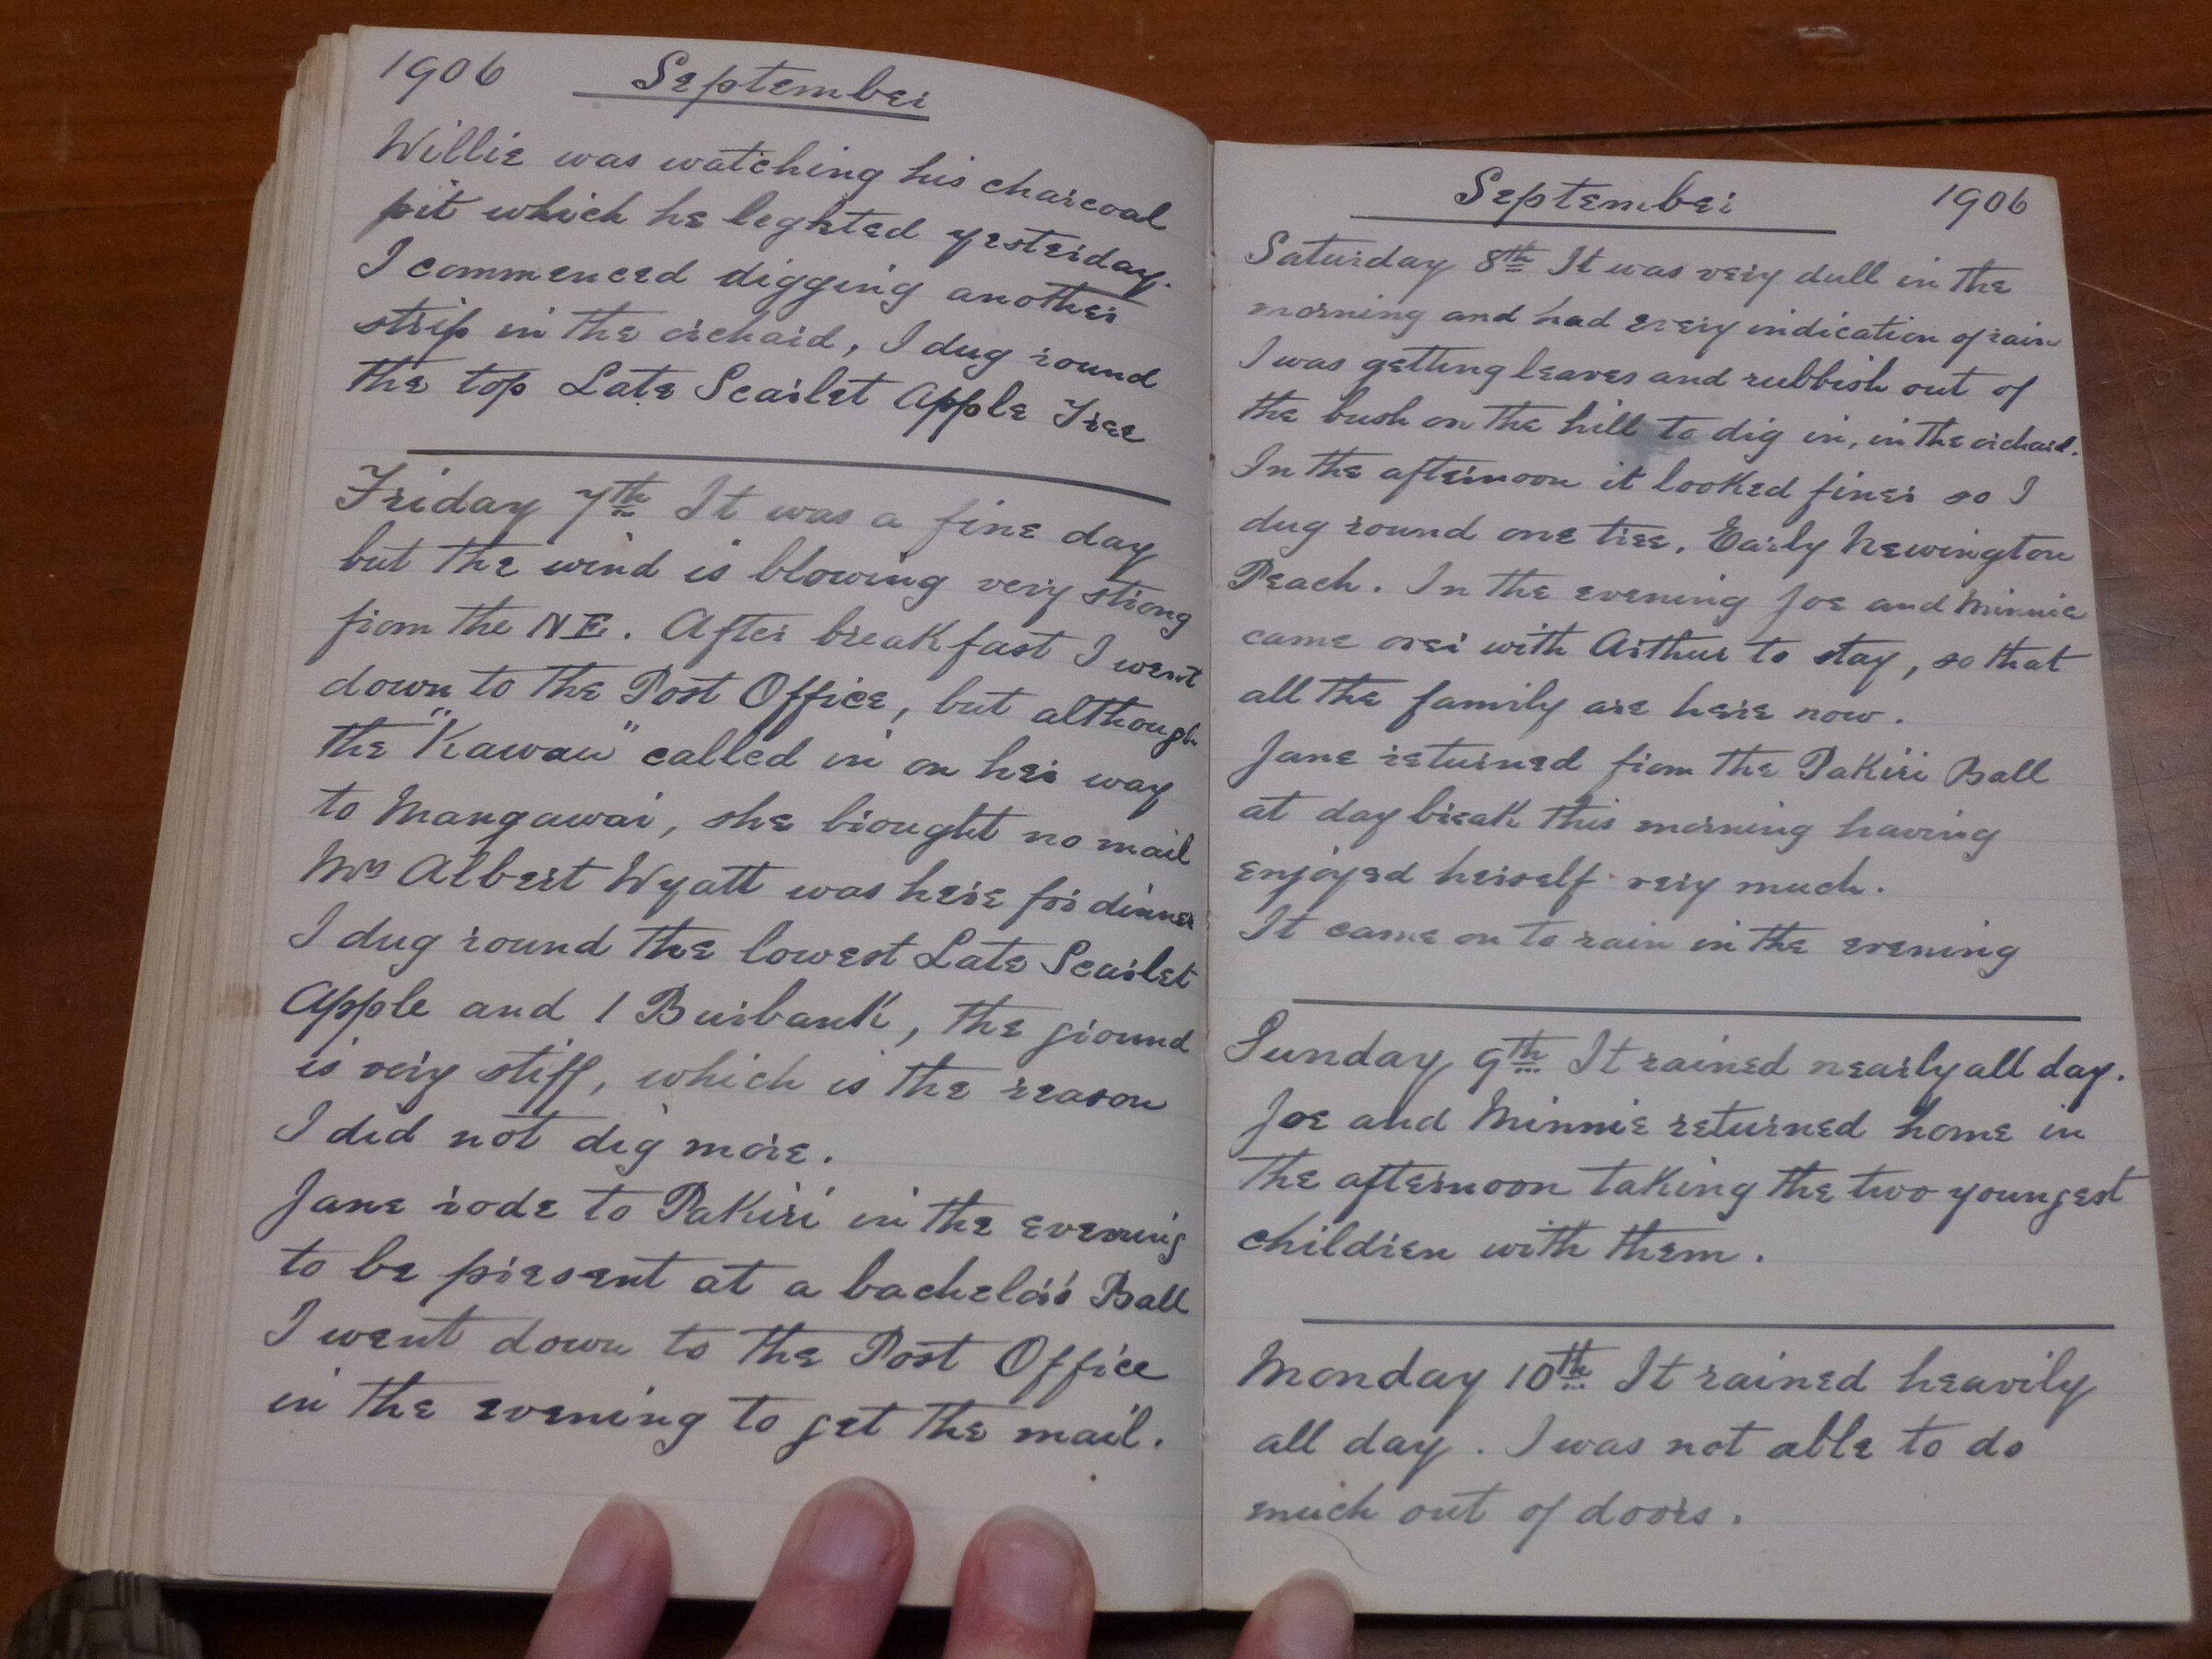 1906 September
Willie was watching his charcoal
pit which he lighted yesterday.
I commenced digging another
strip in the orchard, I dug round
the top Late Scarlet Apple Tree
Friday 7th It was a fine day
but the wind is blowing very strong
from the NE. After breakfast I went
down to the Post Office, but although
the "Kawau" called in on her way
to Mangawai, she brought no mail
Mrs Albert Wyatt was here for dinner
I dug round the lowest Late Scarlet
Apple and 1 Burbank, the ground
is very stiff, which is the reason
I did not dig more.
Jane rode to Pakiri in the evening
to be present at a bachelor's Ball
I went down to the Post Office
in the evening to get the mail.
September 1906
Saturday 8th It was very dull in the
morning and had every indication of rain
I was getting leaves and rubbish out of
the bush on the hill to dig in, in the orchard.
In the afternoon it looked finer so I
dug round one tree, Early Newington
Peach. In the evening Joe and Minnie
came over with Arthur to stay, so that
all the family are here now.
Jane returned from the Pakiri Ball
at daybreak this morning having
enjoyed herself very much.
It came on to rain in the evening
Sunday 9th It rained nearly all day.
Joe and Minnie returned home in
the afternoon taking the two youngest
children with them.
Monday 10th It rained heavily
all day. I was not able to do
much out of doors.